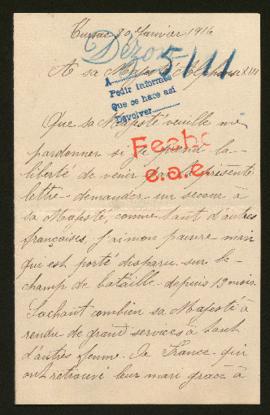 Janvier 1916
Dezon
5/111
A sa Majesté Alphonse XIII
A
Pedir informes
Que se hace asi
Devolver
Que sa Majesté veuille me
pardonner si je prend la
Fecho
e.a.e.
liberté de venir présente
lettre demander un secour à
sa Majesté, comme tant d'autres
françaises, j'ai mon pauvre mari
qui est porté disparu sur le
champ de bataille depuis 13 mois.
Sachant combien sa Majesté à
rendu de grand services à tant
d'autres femme de France qui
ont retrouvé leur mari grace à